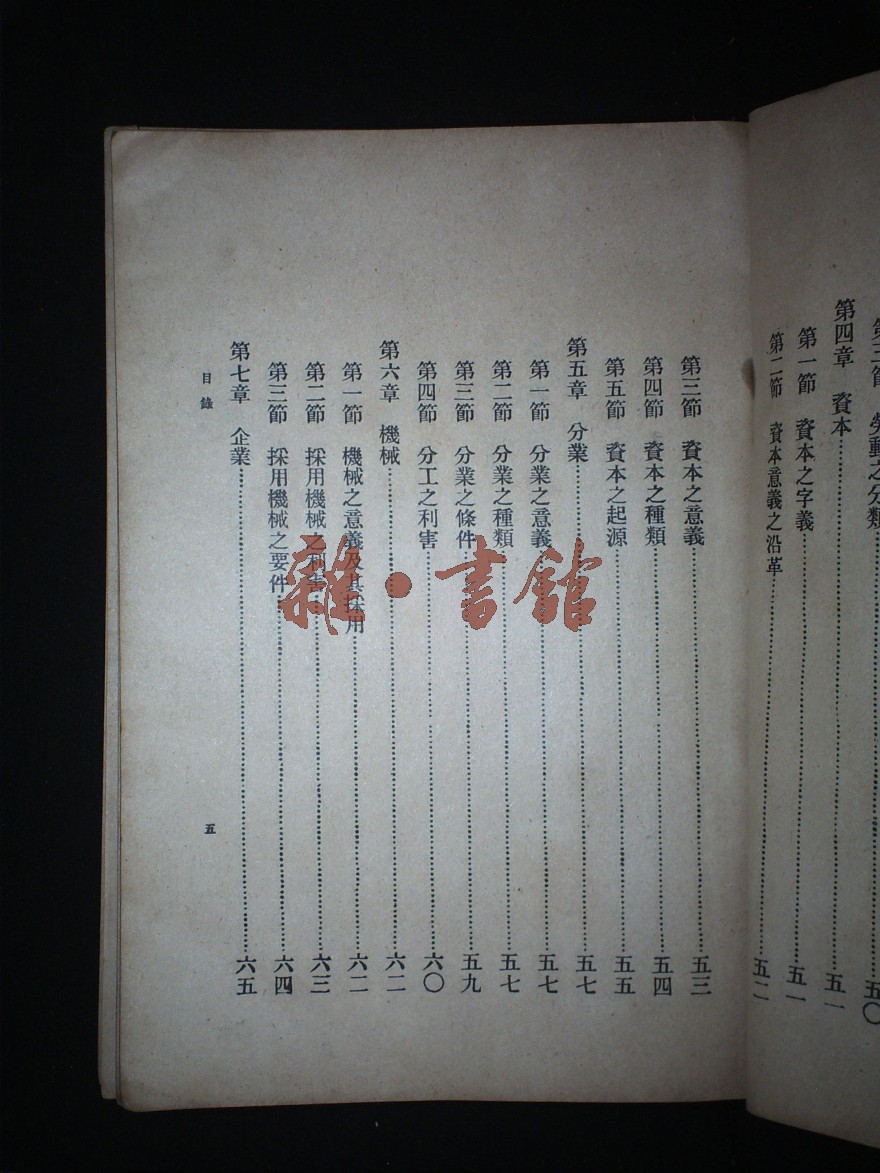 第三節 勞動之分類……五〇
第四章 資本……五一
第一節 資本之字義……五一
第二節 資本意義之沿革……五二
第三節 資本之意義……五三
第四節 資本之種類……五四
第五節 資本之起源……五五
第五章 分業……五七
第一節 分業之意義……五七
第二節 分業之種類……五七
第三節 分業之條件……五九
第四節 分工之利害……六〇
第六章 機械……六二
第一節 機械之意義及其採用……六二
第二節 採用機械之利害……六三
第三節 採用機械之要件……六四
第七章 企業……六五
目錄 五
雜·書館